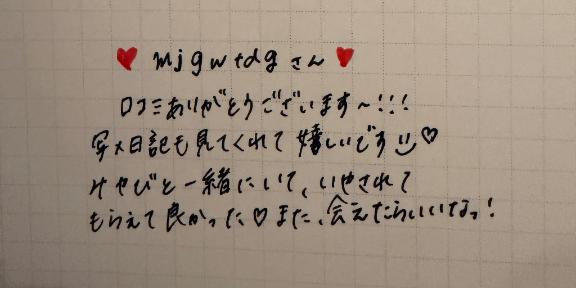 ♥ mjgwtdgさん ♥
口コミありがとうございます〜!!!
写メ日記も見てくれて嬉しいです♡
みやびと一緒にいて、いやされて
もらえて良かった♡また、会えたらいいなっ!